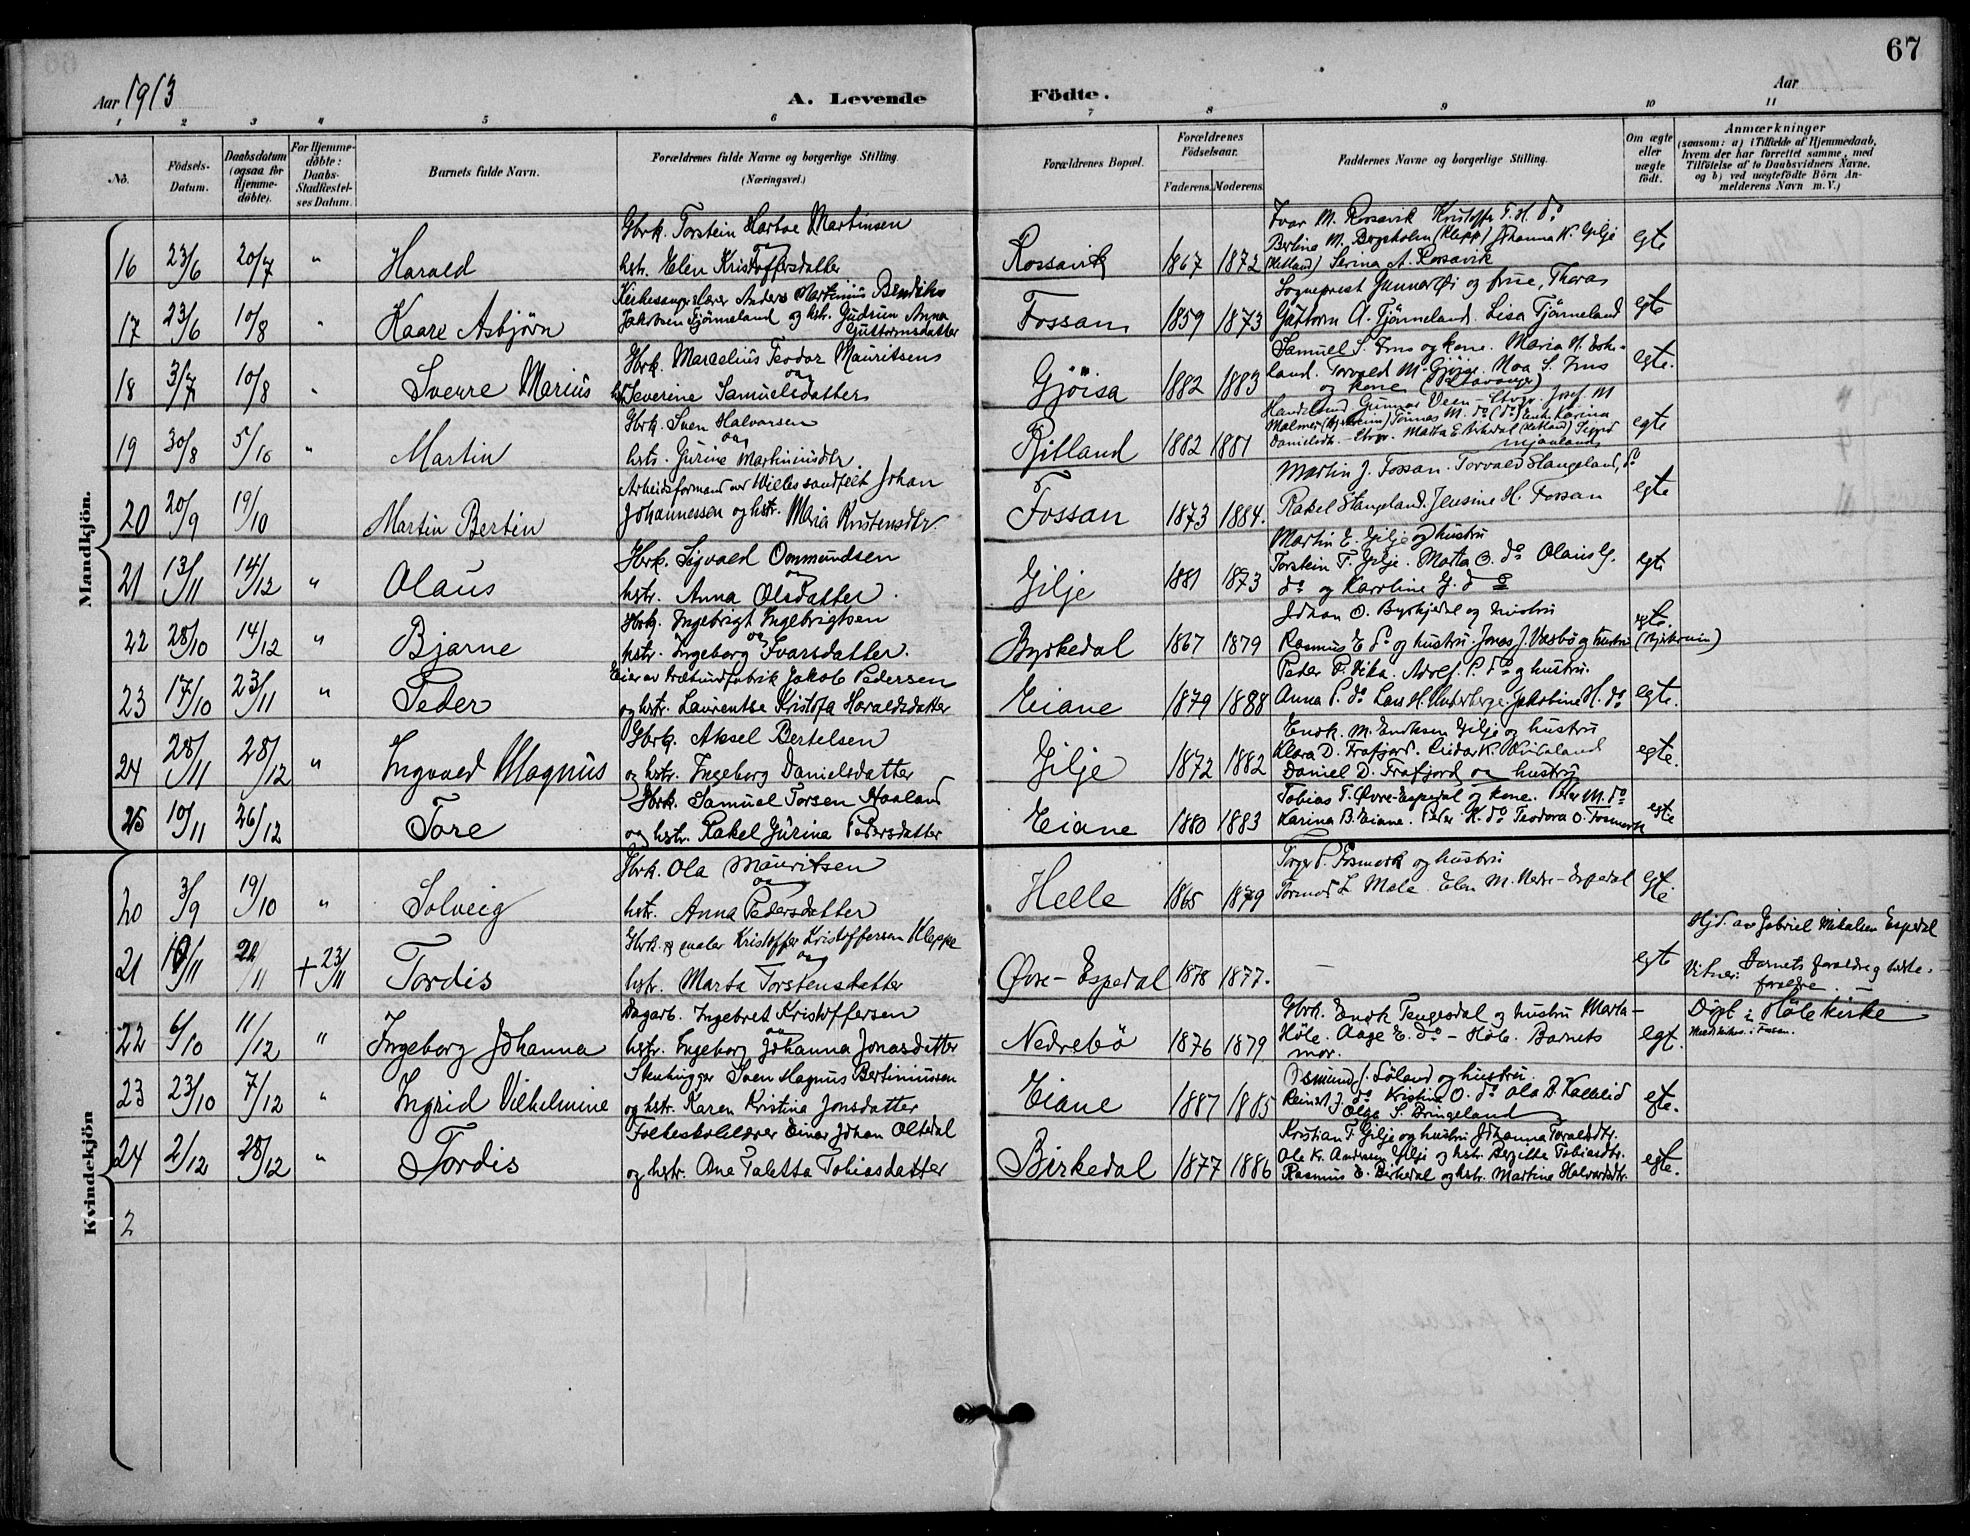 67
Aar 1913
A. Levende Födte.
Aar
1 2 3 4 5 6 7 8 9 10 11
No. Födsels-Datum. Daabsdatum (ogsaa for Hjemme-döbte). For Hjemme-döbte: Daabs-Stadfæstel-ses Datum. Barnets fulde Navn. Forældrenes fulde Navne og borgerlige Stilling. (Næringsvei.) Forældrenes Bopæl. Forældrenes Födselsaar. Faderens. Moderens. Faddernes Navne og borgerlige Stilling. Om ægte eller uægte födt. Anmærkninger (saasom: a) i Tilfælde af Hjemmedaab, hvem der har forrettet samme, med Tilföielse af to Daabsvidners Navne, og b) ved uægtefödte Börn An-melderens Navn m. V.)
Mandkjön.
16 23/6 20/7 " Harald Gbrk. Torstein Hartvo Martinsen og hstr. Elen Kristoffersdatter Rossavik 1867 1872 Ivar M. Rossavik Kristoffer T. H. do
Berlina M. Bergsholm (Klepp) Johanna K. Gilje
(Hetland) Serina A. Rossavik egte
17 23/6 10/8 " Kaare Asbjörn Kirkesanger lærer Anders Martinius Bendiks
Jakobsen Tjönneland og hstr. Gudrun Anna
Guttormsdatter Fossan 1859 1873 Sogneprest Gunnar Öi og frue, Thoras
Guttorm A. Tjönneland. Lisa Tjönneland egte
18 3/7 10/8 " Sverre Marius Gbrk. Marcelius Teodor Mauritsens
og hstr. Severine Samuelsdatter Gjöisa 1882 1883 Samuel S. Ims og kone. Maria H. Eske-
land. Torvald M. Gjöise. Moa S. Ims
og kone (Stavanger) egte.
19 30/8 5/10 " Martin Gbrk. Sven Halvorsen
og
hstr. Gurine Martiniusdtr Ritland 1882 1881 Gunnar Veen Josef M
Malmei Tönnas M. do (do) Enke Karina
Danielsdtr. Marta E. (Hetland) Sigrid
Mjaaland egte
20 20/9 19/10 Martin Bertin Arbeidsformand ved Johan
Johannessen og hstr. Maria Kristensdtr. Fossan 1873 1884. Martin J. Fossan. Torvald Stangeland, do
Rakel Stangeland. Jensine H. Fossan egte
21 13/11 14/12 " Olaus Gbrk. Sigvald Ommundsen
og
hstr. Anna Olsdatter. Gilje 1881 1873 Martin E. Gilje og hustru
Torstein T. Gilje. Marta O. do Olaus G.
do og Karoline G. do egte
22 28/10 14/12 " Bjarne Gbrk. Ingebrigt Ingebrigtsen
og
hstr. Ingeborg Ivarsdatter. Byrkedal 1867 1879 Johan O. Byrkjedal og hustru
Rasmus E do og hustru. Jonas J. Vasbö og hustru (Bjerkreim) egte.
23 17/10 23/11 " Peder Eier av Jakob Pedersen
og hstr. Laurentse Kristofa Haraldsdatter Eiane 1879 1888 Peder P. Vika. Adolf P. do og hustru.
Anna P. do Lars H. Jakobine H. do egte.
24 28/11 28/12 " Ingvald Magnus Gbrk. Aksel Bertelsen
og hstr. Ingeborg Danielsdatter Gilje 1872 1882 Endk. M. Endresen Gilje og hustru
Klara D. Frafjord. Kvitaland
Daniel D. Frafjord og hustru egte.
25 10/11 26/12 Tore Gbrk. Samuel Torsen Haaland
og hstr. Rakel Gurina Pedersdatter Eiane 1880 1883 Tobias T. Övre-Espedal og kone. Peder M. do
Karina B. Eiane. Peder K. do Teodora O. Fosmork egte
Kvindekjön
20 3/9 19/10 " Solveig Gbrk. Ola Mauritsen
og
hstr. Anna Pedersdatter Helle 1865 1879 Torger P. Fosmork og hustru
Tormod L. Mele. Elen M. Nedre-Espedal egte.
21 10/11 22/11 + 23/11 Tordis Gbrk. og maler Kristoffer Kristoffersen Kleppe
og
hstr. Marta Torstensdatter Övre-Espedal 1878 1877. – egte Hjd. av Gabriel Mikalsen Espedal
Vitner: Barnets foreldre og beste-
foreldre.
22 6/10 11/12 " Ingeborg Johanna Dagarb. Ingebret Kristoffersen
og
hstr. Ingeborg Johanna Jonasdatter Nedrebö 1876 1879 Gbrk. Endk Tengesdal og hustru Marta –
Höle. Aage E. do – Höle. Barnets
mor. egt. Döpt i Höle kirke
23 23/10 7/12 " Ingrid Vilhelmine Stenhugger Sven Magnus Bertiniussen
og hstr. Karen Kristina Jonsdatter Eiane 1887 1885 Osmund J. Löland og hustru.
Reinert J. do Kristina O. do Ola D. Kalleid
Olga S. Bringeland egte.
24 2/12 28/12 " Tordis Folkeskolelærer Einar Johan Oltedal
og hstr. Ane Taletta Tobiasdatter Birkedal 1877 1886 Kristian T. Gilje og hustru Johanna Toraldsdtr.
Ole Kr. Andersen Gilje og hstr. Bergitte Tobiasdtr.
Rasmus E. Birkedal og hstr. Martine Halvorsdtr. egte.
2